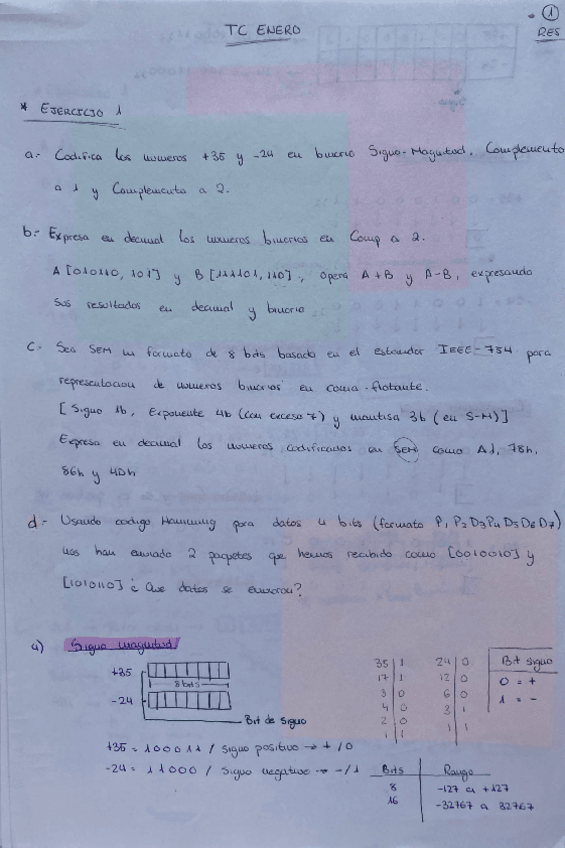 TC ENERO
1
RES
* EJERCICIO 1
a.- Codifica los numeros +35 y -24 en binario Signo-Magnitud, Complemento
a 1 y Complemento a 2.
b.- Expresa en decimal los numeros binarios en Comp a 2.
A [010110, 101] y B [111101, 110]., Opera A+B y A-B, expresando
sus resultados en decimal y binario
C.- Sea SEM un formato de 8 bits basado en el estandar IEEE-754 para
representacion de numeros binarios en coma-flotante.
[Signo 1b, Exponente 4b (con exceso 7) y mantisa 3b (en S-M)]
Expresa en decimal los numeros codificados en SEM como A1, 78h,
86h y 4Dh
d.- Usando codigo Hamming para datos 4 bits (formato P1 P2 D3 P4 D5 D6 D7)
nos han enviado 2 paquetes que hemos recibido como [0010010] y
[1010110] ¿Que datos se enviaron?
a) Signo magnitud
+35
8 bits
-24
Bit de signo
35 | 1
17 | 1
8 | 0
4 | 0
2 | 0
1 | 1
24 | 0
12 | 0
6 | 0
3 | 1
1 | 1
Bit signo
0 = +
1 = -
+35 = 100011 / Signo positivo → + / 0
-24 = 11000 / Signo negativo → - / 1
Bits Rango
8 -127 a +127
16 -32767 a 32767